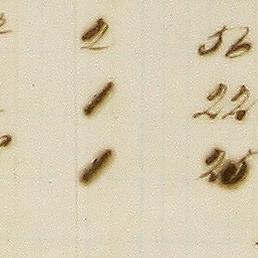 2 56
1 22
1 25